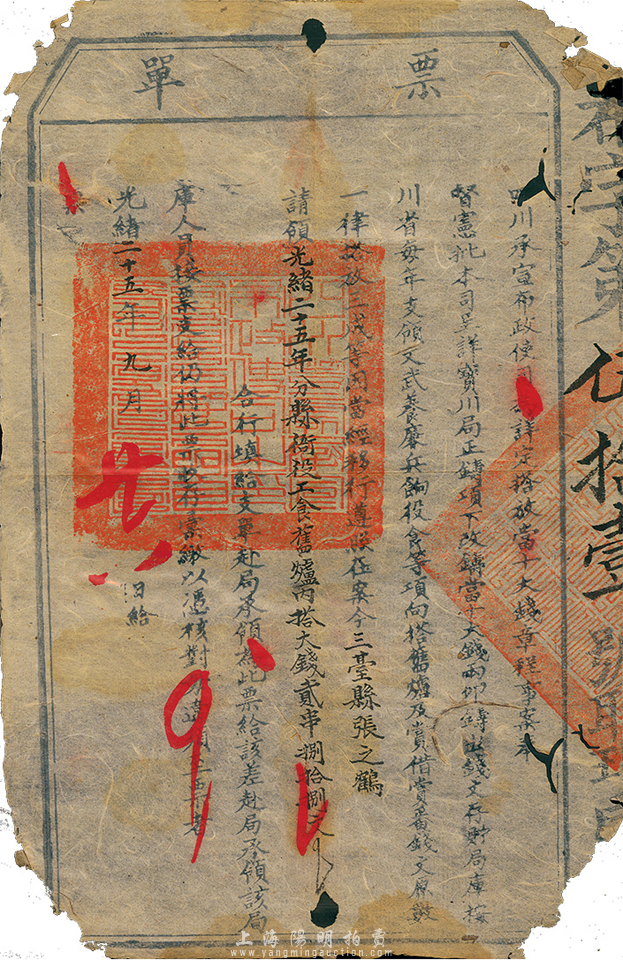 票單
四川承宣布政使司為詳定搭放當十大錢章程事案奉
督憲批本司呈詳寶川局正鑄項下改鑄當十大錢兩卯鑄出錢文存貯局庫按
川省每年支領文武養廉兵餉役食等項向搭舊爐及賞借賞番錢文原數
一律搭放三成等因當經移行遵照在案今三臺縣張之鶴
請領光緒二十五年分縣衙役工食舊爐內搭大錢貳串捌拾捌文
合行填給支單赴局承領為此票給該差赴局承領該局
庫人員按票支給仍將此票存案繳以憑核對不違須至票者
光緒二十五年九月廿八日給
字第伍拾壹號
上海陽明拍賣
www.yangmingauction.com